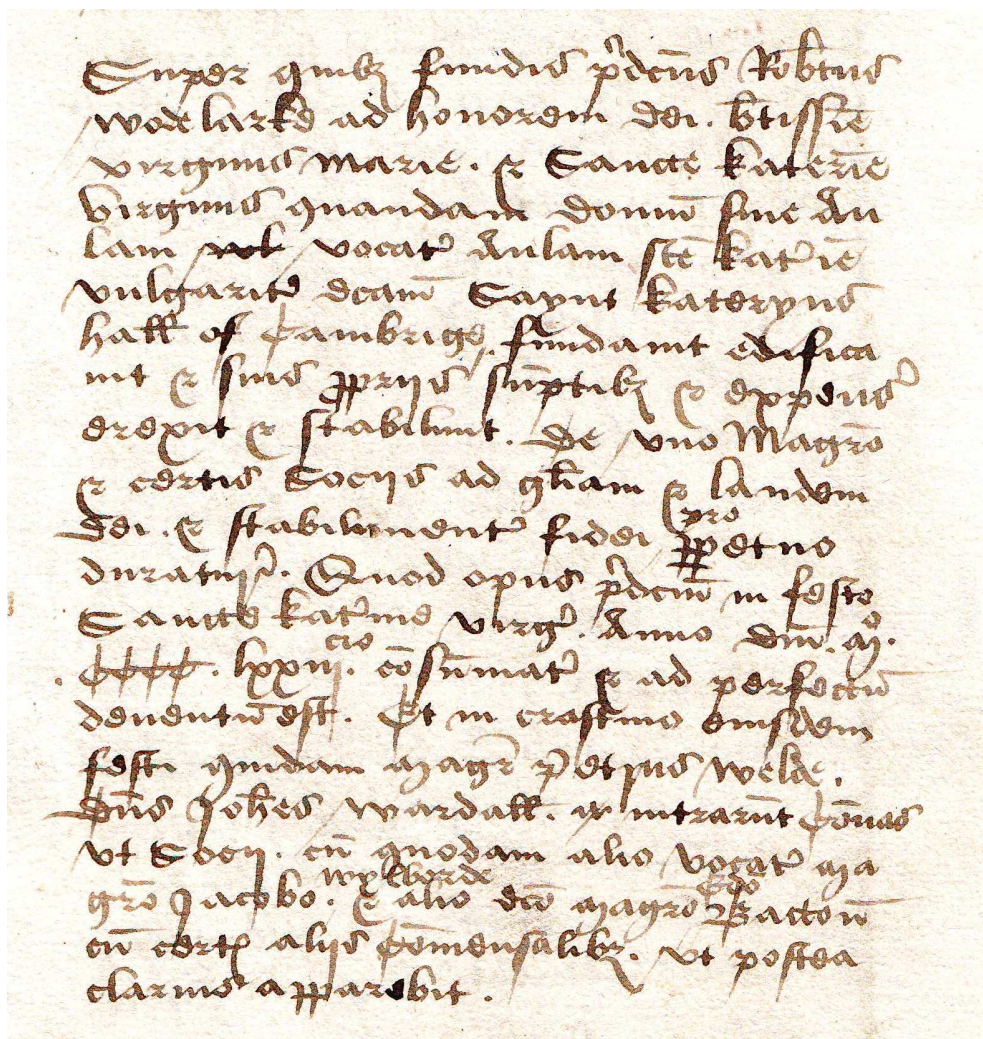 Super quibȝ fundis p'dcūs Rob̄tus
wodelarke ad honorem dei . b̄tissīe
virginis Marie . & Sancte kat'ine
virginis quandam domū siue Au
lam vocat' Aulam scē kat'ie
vulgarit' dcām Saynt kateryns
hall of Cambrige, fundauit edifica
uit & suis ꝓpriis sūptibȝ & expens'
erexit & stabiliuit . De vno Magrō
& certis Sociis ad gl̄iam & laudem
dei . & stabiliment' fidei ꝑpetuo
duratur' . Quod opus p'dcūm in festo
Sancte kat'ine virg' . Anno dn̄i . Mº .
CCCC . lxxiii . cio cōsūmat' & ad perfectū
deuentū est . Et in crastino eiusdem
festi quidam Magr̄ Petrus welde .
dn̄s Joh̄es wardall . intrarūt Cōuas
vt Socii . cū quodam alio vocat' Ma
grō Jacobo . wykworde & alio dcō Magrō Bactoū
cū cert' aliis Cōmensalibȝ . vt postea
clarius apparebit .